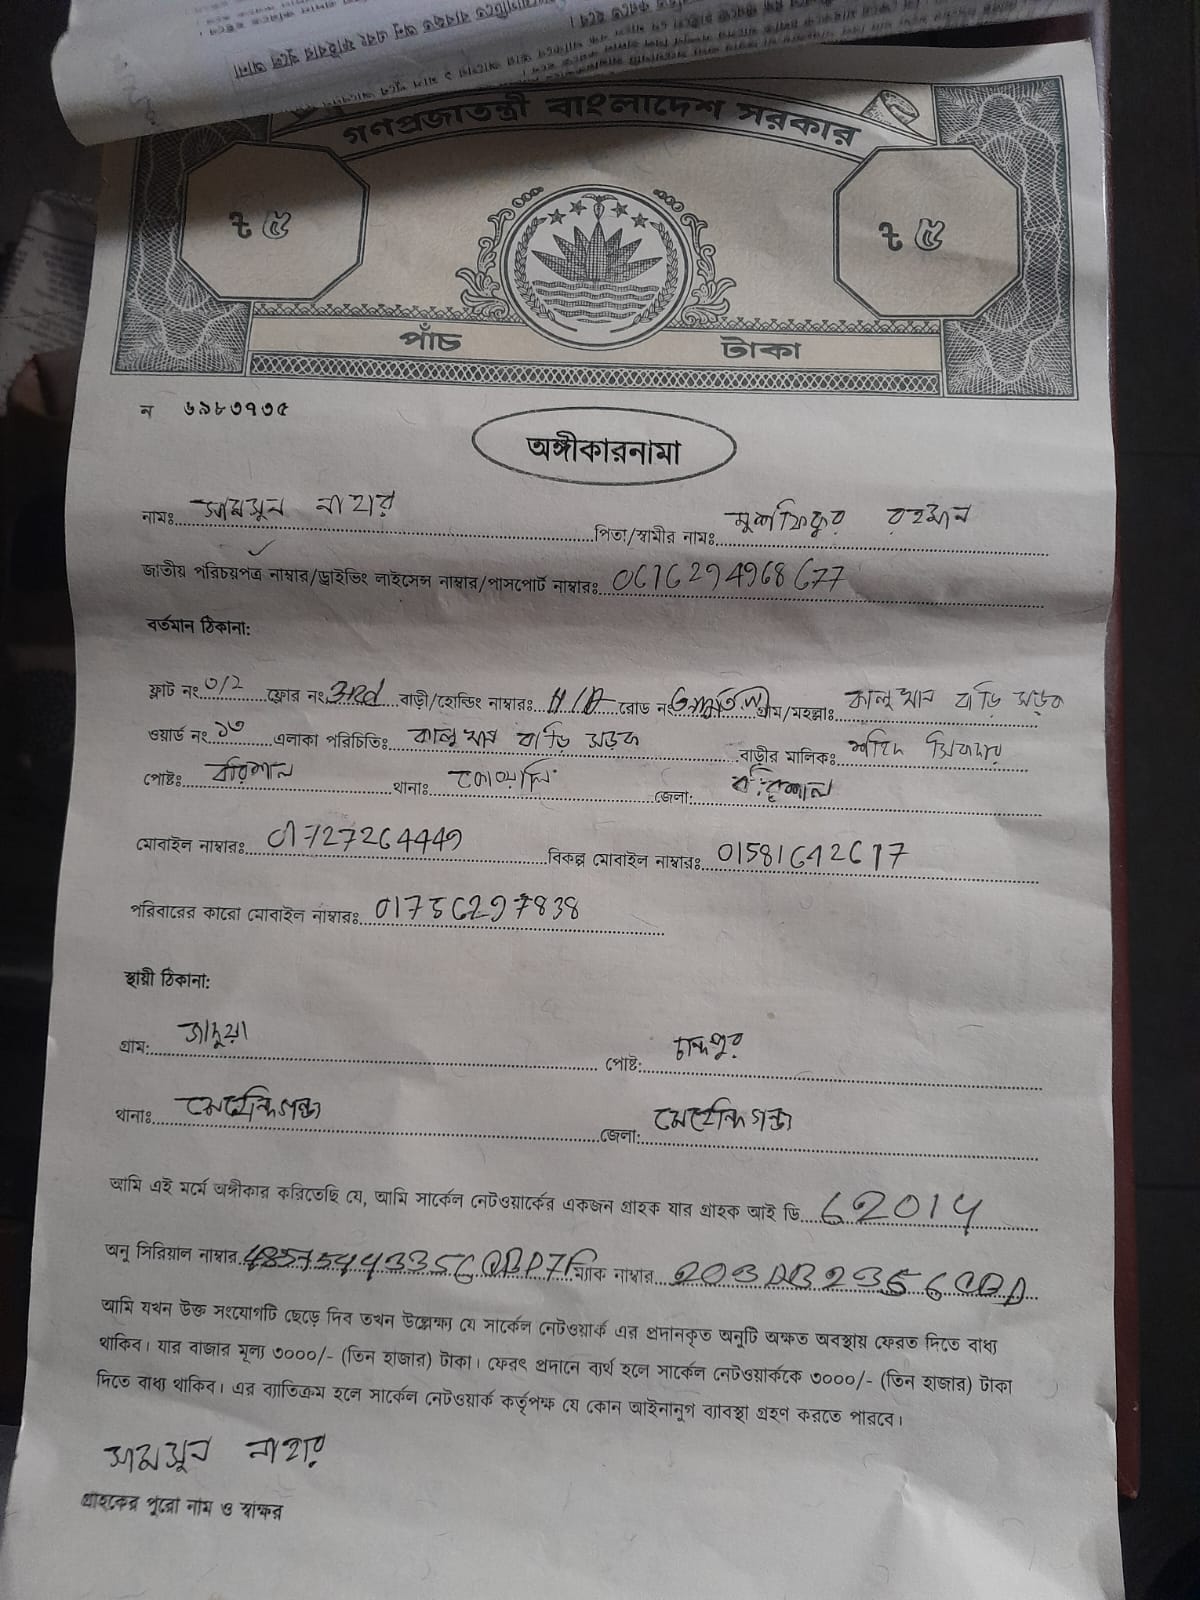 গণপ্রজাতন্ত্রী বাংলাদেশ সরকার
৳ ৫ ৳ ৫
পাঁচ টাকা
ন ৬৯৮৩৭৩৫
অঙ্গীকারনামা
নামঃ সামসুন নাহার পিতা/স্বামীর নামঃ মুশফিকুর রহমান
জাতীয় পরিচয়পত্র নাম্বার/ড্রাইভিং লাইসেন্স নাম্বার/পাসপোর্ট নাম্বারঃ
বর্তমান ঠিকানা:
ফ্লাট নং ফ্লোর নং 3rd বাড়ী/হোল্ডিং নাম্বারঃ রোড নং গ্রাম/মহল্লাঃ কালু খান বাড়ি সড়ক
ওয়ার্ড নং ১৩ এলাকা পরিচিতিঃ কালু খান বাড়ি সড়ক বাড়ীর মালিকঃ শহিদ সিকদার
পোষ্টঃ বরিশাল থানাঃ জেলা: বরিশাল
মোবাইল নাম্বারঃ 01727264449 বিকল্প মোবাইল নাম্বারঃ 01581642617
পরিবারের কারো মোবাইল নাম্বারঃ 01756297838
স্থায়ী ঠিকানা:
গ্রাম: জাদুয়া পোষ্ট: চান্দপুর
থানাঃ মেহেন্দিগঞ্জ জেলা: মেহেন্দিগঞ্জ
আমি এই মর্মে অঙ্গীকার করিতেছি যে, আমি সার্কেল নেটওয়ার্কের একজন গ্রাহক যার গ্রাহক আই ডি 62014
অনু সিরিয়াল নাম্বার ম্যাক নাম্বার
আমি যখন উক্ত সংযোগটি ছেড়ে দিব তখন উল্লেক্ষ্য যে সার্কেল নেটওয়ার্ক এর প্রদানকৃত অনুটি অক্ষত অবস্থায় ফেরত দিতে বাধ্য
থাকিব। যার বাজার মূল্য ৩০০০/- (তিন হাজার) টাকা। ফেরৎ প্রদানে ব্যর্থ হলে সার্কেল নেটওয়ার্ককে ৩০০০/- (তিন হাজার) টাকা
দিতে বাধ্য থাকিব। এর ব্যাতিক্রম হলে সার্কেল নেটওয়ার্ক কর্তৃপক্ষ যে কোন আইনানুগ ব্যাবস্থা গ্রহণ করতে পারবে।
সামসুন নাহার
গ্রাহকের পুরো নাম ও স্বাক্ষর